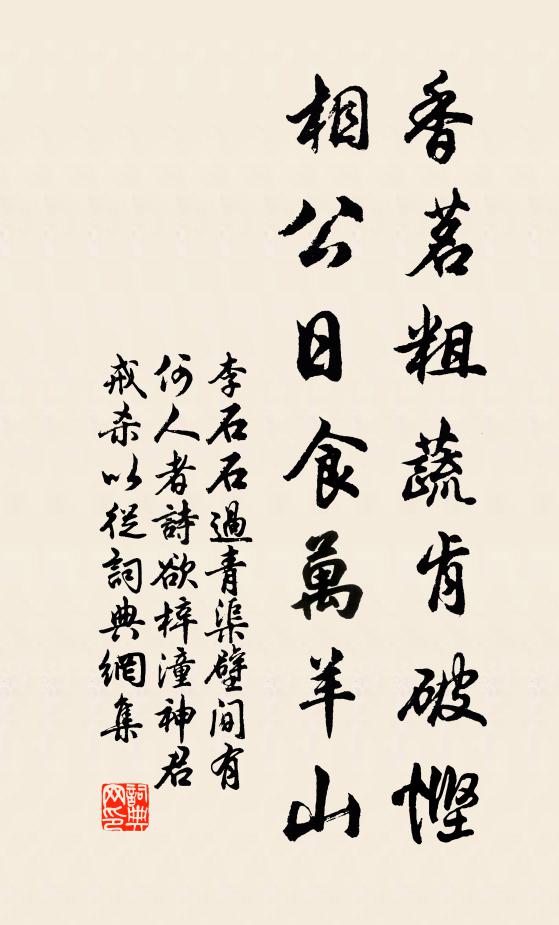 香茗粗蔬肯破慳
相公日食萬羊山
李石石過青渠壁间有
何人者詩欲梓潼神君
戒杀以從詞典網集
詞典网印